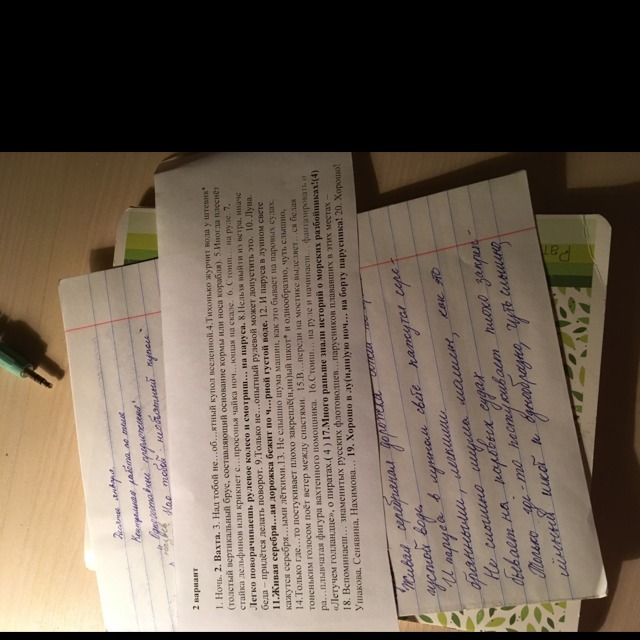 2 вариант
1. Ночь. 2. Вахта. 3. Над тобой не…об…ятный купол вселенной.4.Тихонько журчит вода у штевня*
(толстый вертикальный брус, составляющий основание кормы или носа корабля). 5.Иногда плеснёт
стайка дельфинов или крикнет с…просонья чайка ноч…ющая на скале. 6. Стоиш… на руле. 7.
Легко поворачиваешь рулевое колесо и смотриш… на паруса. 8.Нельзя выйти из ветра, иначе
беда – придётся делать поворот. 9.Только не…опытный рулевой может допустить это. 10. Луна.
11.Живая серебря…ая дорожка бежит по ч…рной густой воде. 12. И паруса в лунном свете
кажутся серебря…ыми лёгкими.13. Не слышно шума машин, как это бывает на паровых судах.
14.Только где…то постукивает плохо закреплё(н,нн)ый шкот* и однообразно, чуть слышно,
тоненьким голосом поёт ветер между снастями. 15.В…переди на мостике выделяет…ся белая
ра…плывчатая фигура вахтенного помощника. 16.Стоиш… на руле и начинаеш… фантазировать о
«Летучем голландце», о пиратах.(4) 17.Много раньше знали историй о морских разбойниках!(4)
18. Вспоминаеш… знаменитых русских флотоводцев…парусников плававших в этих местах –
Ушакова, Сенявина, Нахимова… 19. Хорошо в лу(н,нн)ую ноч… на борту парусника! 20. Хорошо!
Контрольная работа по теме
Живая серебряная дорожка бежит по
густой воде
И паруса в лунном свете кажутся сере-
бряными, лёгкими
Не слышно шума машин, как это
бывает на паровых судах
Только где-то постукивает плохо закреп-
лённый шкот и однообразно, чуть слышно,